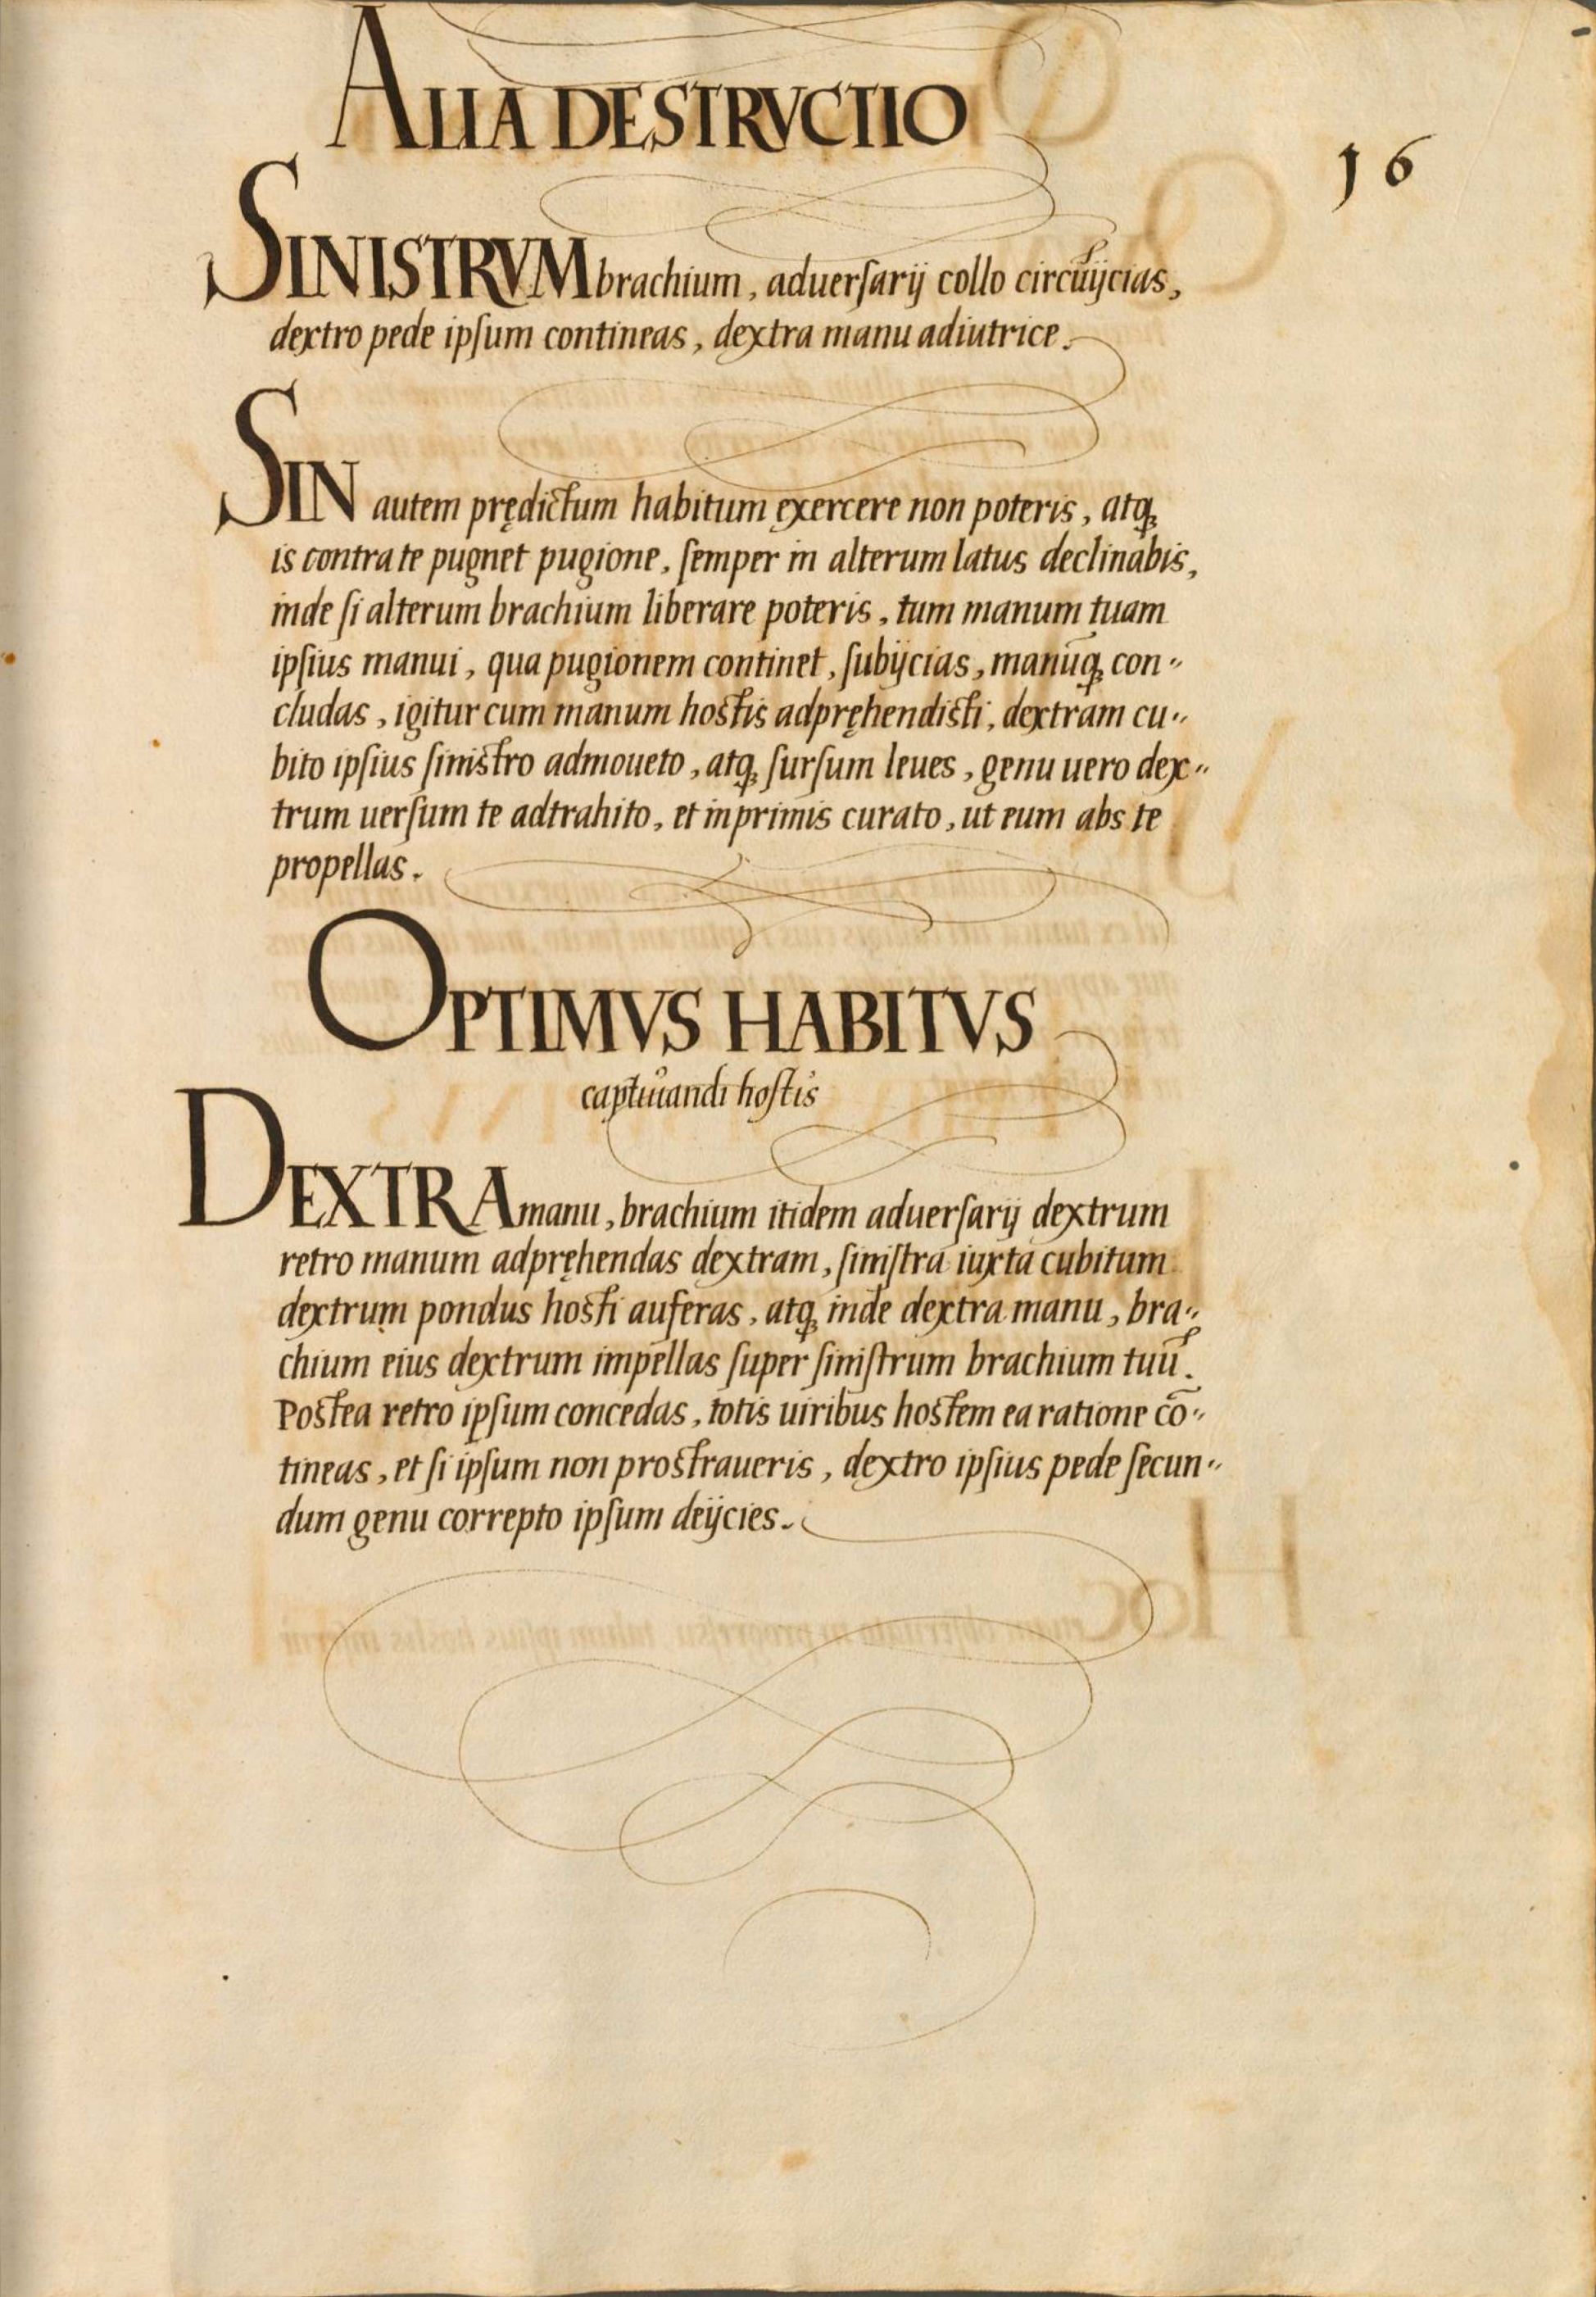 ALIA DESTRVCTIO
16
SINISTRVM brachium, aduerſarij collo circũijcias,
dextro pede ipſum contineas, dextra manu adiutrice.
SIN autem prędictum habitum exercere non poteris, atq̨
is contra te pugnet pugione, ſemper in alterum latus declinabis,
inde ſi alterum brachium liberare poteris, tum manum tuam
ipſius manui, qua pugionem continet, ſubijcias, manūq̨ con〃
cludas, igitur cum manum hoſtis adpręhendiſti, dextram cu〃
bito ipſius ſiniſtro admoueto, atq̨ ſurſum leues, genu uero dex〃
trum uerſum te adtrahito, et inprimis curato, ut eum abs te
propellas.
OPTIMVS HABITVS
captiuandi hoſtis
DEXTRA manu, brachium itidem aduerſarij dextrum
retro manum adpręhendas dextram, ſiniſtra iuxta cubitum
dextrum pondus hoſti auferas, atq̨ inde dextra manu, bra〃
chium eius dextrum impellas ſuper ſiniſtrum brachium tuũ.
Poſtea retro ipſum concedas, totis uiribus hoſtem ea ratione cō〃
tineas, et ſi ipſum non proſtraueris, dextro ipſius pede ſecun〃
dum genu correpto ipſum deijcies.